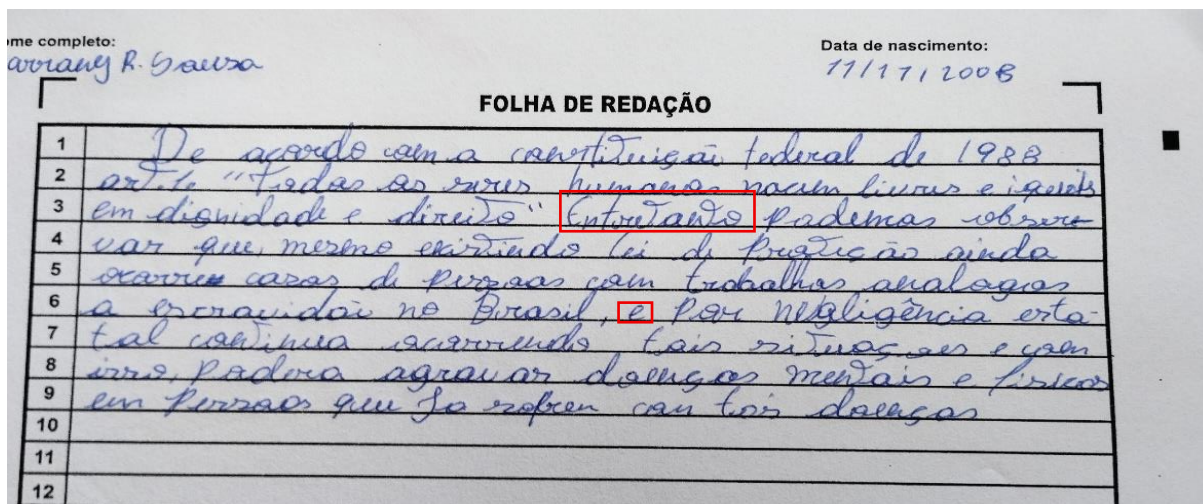 ome completo:
arrany R. Sousa
Data de nascimento:
11/11/2008
FOLHA DE REDAÇÃO
1 De acordo com a constituição federal de 1988
2 art.1. "todos os seres humanos nacem livres e iguais
3 em dignidade e direito" Entretanto podemos obser-
4 var que, mesmo existindo lei de proteção ainda
5 ocorre casos de pessoas com trabalhos analogos
6 a escravidão no Brasil, e por negligência esta-
7 tal continua ocorrendo tais situações e com
8 isso, podera agravar doenças mentais e fisicas
9 em pessoas que ja sofren com tais doenças
10
11
12